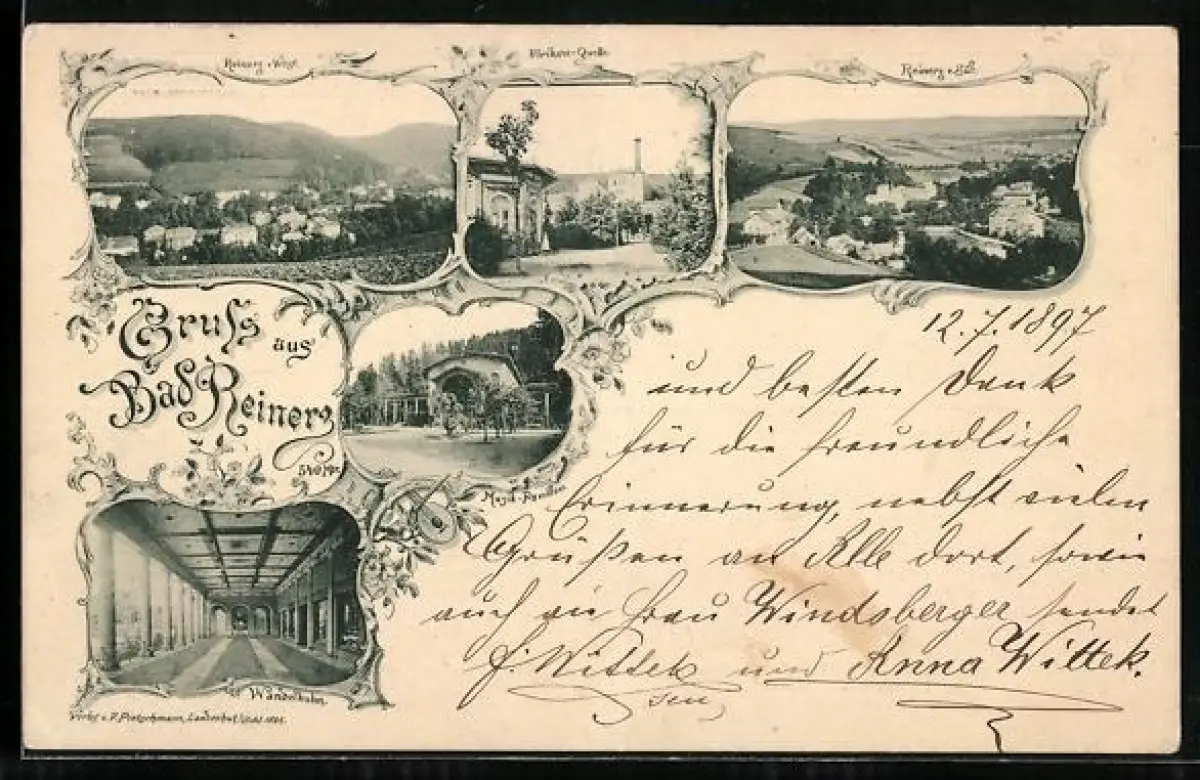 Reinerz v. West
Ulriken-Quelle
Reinerz v. Süd
Gruss aus
Bad Reinerz
Musik-Pavillon
Wandelbahn
12.7.1897
und besten Dank
für die freundliche
Erinnerung, nebst vielen
Grüßen an Alle dort, sowie
auch an Frau Windsberger sendet
F. Wittek und Anna Wittek.
sen,